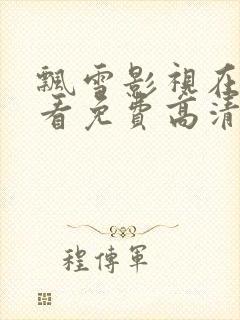 飄雪影視在
看免費高清
程傳軍